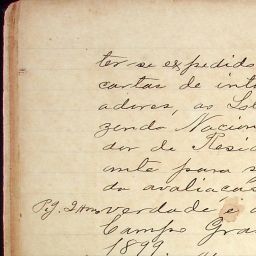 ter-se expedido
cartas de inti
adores, ao Sol
zenda Nacion
dor de Resid
ante para s
da avaliação
verdade, e d
Campo Gra
1899